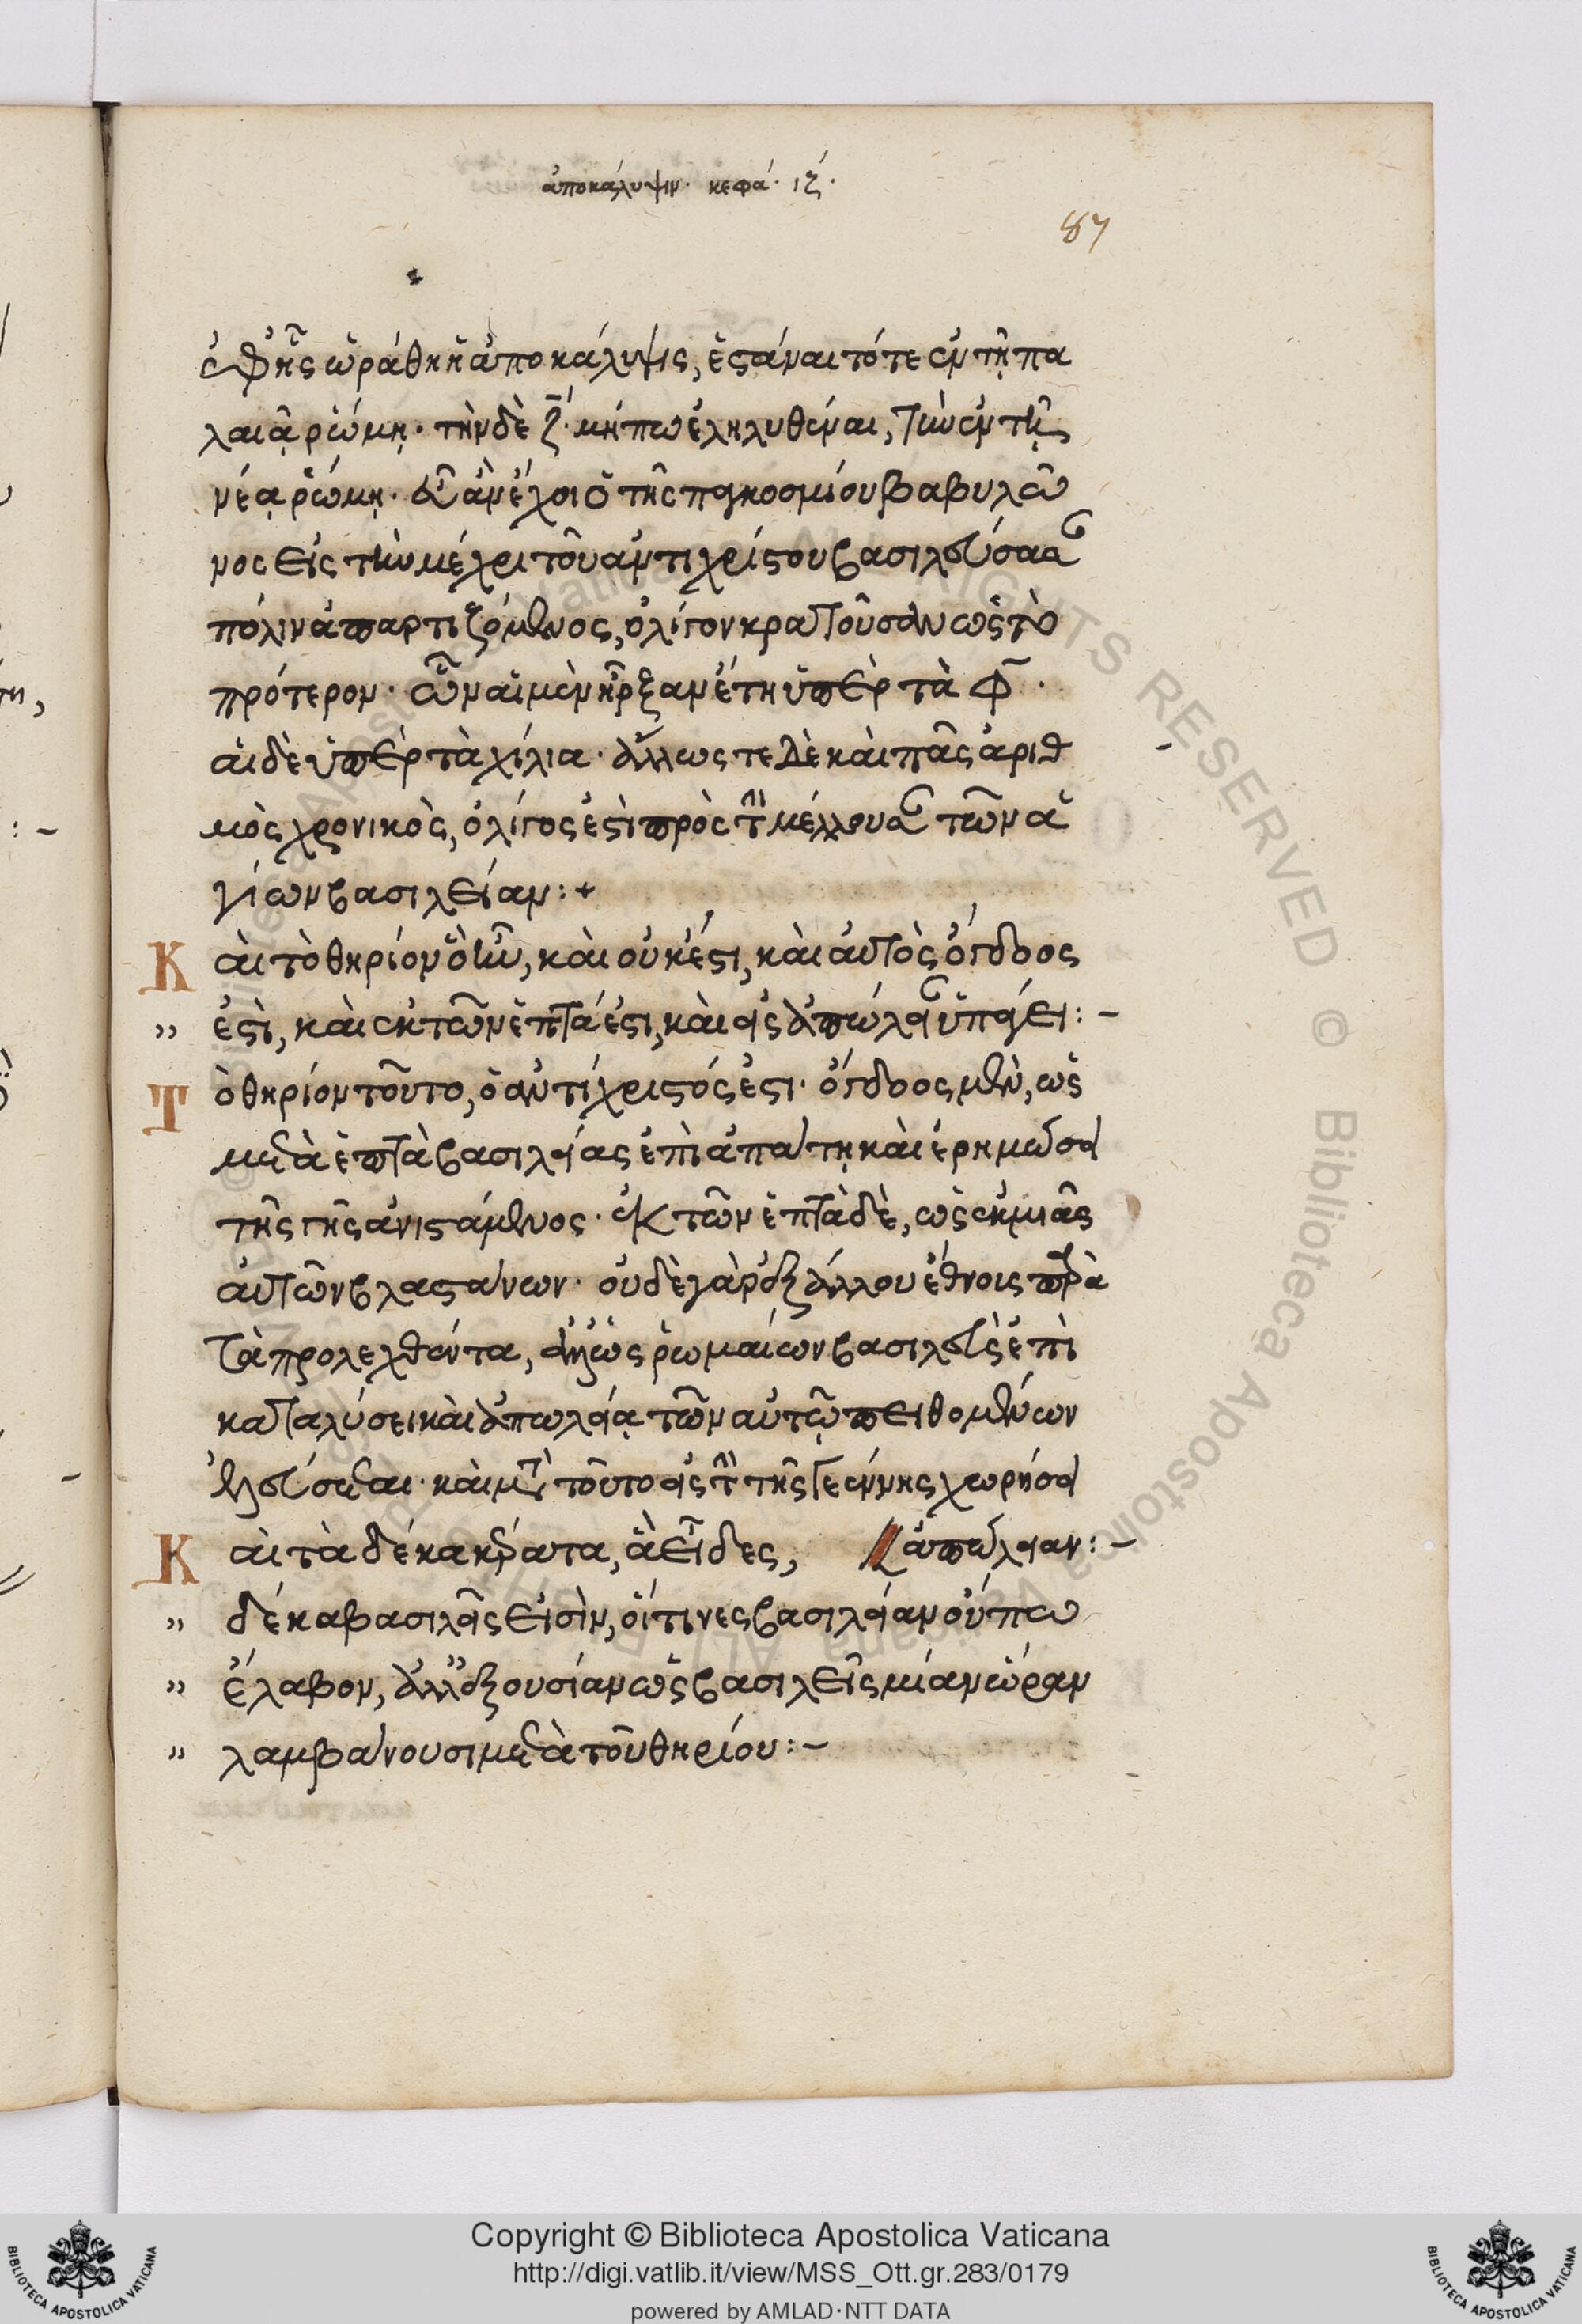 ἀποκάλυψιν. κεφά. ιζ.
87
ἐφ' ἧς ὡράθη ἡ ἀποκάλυψις, ἑστάναι τότε ἐν τῇ πα
λαιᾷ ῥώμῃ. τὴν δὲ ζ. μήπω ἐληλυθέναι, τὴν ἐν τῇ
νέᾳ ῥώμῃ.
νος εἰς τὴν μέχρι τοῦ ἀντιχρίστου βασιλεύσασαν
πόλιν ἀπαρτιζόμενος, ὀλίγον κρατοῦσαν ὡς τὸ
πρότερον. ὧν αἱ μὲν ἦρξαν ἔτη ὑπὲρ τὰ φ.
αἱ δὲ ὑπὲρ τὰ χίλια. ἄλλως τε δὲ καὶ πᾶς ἀριθ
μὸς χρονικὸς, ὀλίγος ἐστὶ πρὸς τὴν μέλλουσαν τῶν ἁ
γίων βασιλείαν:+
Καὶ τὸ θηρίον ὃ ἦν, καὶ οὐκ ἔστι, καὶ αὐτὸς ὄγδοος
" ἐστὶ, καὶ ἐκ τῶν ἑπτά ἐστι, καὶ εἰς ἀπώλειαν ὑπάγει:-
Τὸ θηρίον τοῦτο, ὁ ἀντίχριστός ἐστι. ὄγδοος μὲν, ὡς
μετὰ ἑπτὰ βασιλείας ἐπὶ ἀπάτῃ καὶ ἐρημώσει
τῆς γῆς ἀνιστάμενος. ἐκ τῶν ἑπτὰ δὲ, ὡς ἐκ μιᾶς
αὐτῶν βλαστάνων. οὐδὲ γὰρ ἐξ ἄλλου ἔθνοις παρὰ
τὰ προλεχθέντα, ἀλλ' ὡς ῥωμαίων βασιλεὺς ἐπὶ
καταλύσει καὶ ἀπωλείᾳ τῶν αὐτῷ πειθομένων
ἐλεύσεται. καὶ μετὰ τοῦτο εἰς τὴν τῆς γεέννης χωρήσει
Καὶ τὰ δέκα κέρατα, ἃ εἶδες, // ἀπώλειαν:-
" δέκα βασιλεῖς εἰσὶν, οἵτινες βασιλείαν οὔπω
" ἔλαβον, ἀλλ' ἐξουσίαν ὡς βασιλεῖς μίαν ὥραν
" λαμβάνουσι μετὰ τοῦ θηρίου:-
Copyright © Biblioteca Apostolica Vaticana
http://digi.vatlib.it/view/MSS_Ott.gr.283/0179
powered by AMLAD·NTT DATA